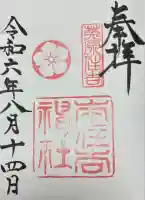 奉拝
本住吉
神社
令和六年八月十四日